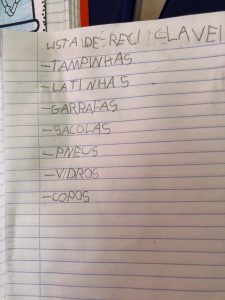 LISTA DE RECICLAVEI
-TAMPINHAS
-LATINHAS
-GARRAFAS
-SACOLAS
-PNEUS
-VIDROS
-COPOS